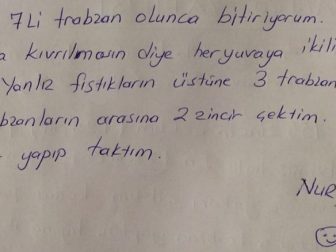 7Li trabzan olunca bitiriyorum.
kıvrılmasın diye her yuvaya ikili
Yanlız fıstıkların üstüne 3 trabzan
bzanların arasına 2 zincir çektim.
yapıp taktım.
Nur